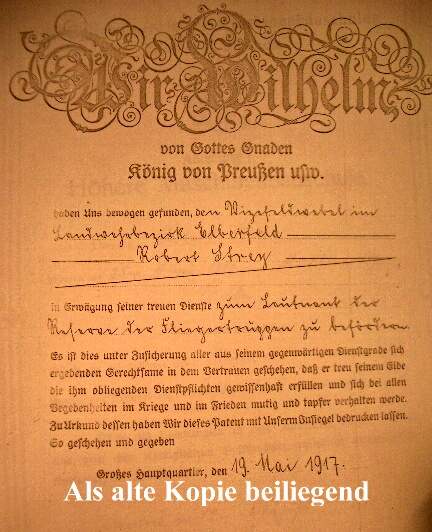 Wir Wilhelm,
von Gottes Gnaden
König von Preußen usw.
haben Uns bewogen gefunden, den Vizefeldwebel im
Landwehrbezirk Elberfeld
Robert
in Erwägung seiner treuen Dienste zum Leutnant der
Reserve der Fliegertruppen zu befördern.
Es ist dies unter Zusicherung aller aus seinem gegenwärtigen Dienstgrade sich
ergebenden Gerechtsame in dem Vertrauen geschehen, daß er treu seinem Eide
die ihm obliegenden Dienstpflichten gewissenhaft erfüllen und sich bei allen
Begebenheiten im Kriege und im Frieden mutig und tapfer verhalten werde.
Zu Urkund dessen haben Wir dieses Patent mit Unserm Insiegel bedrucken lassen.
So geschehen und gegeben
Großes Hauptquartier, den 19. Mai 1917.
Als alte Kopie beiliegend